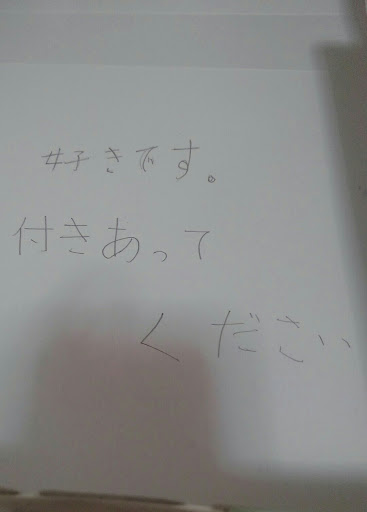 好きです。
付きあって
ください